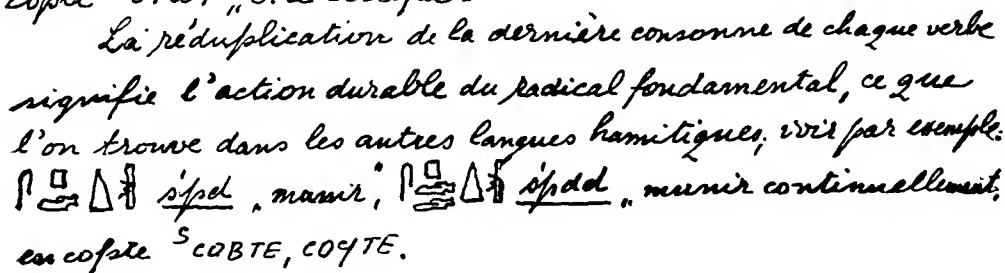 copte
La réduplication de la dernière consonne de chaque verbe
signifie l'action durable du radical fondamental, ce que
l'on trouve dans les autres langues hamitiques; voir par exemple:
śpd „munir", śpdd „munir continuellement,
en copte ˢ ⲥⲟⲃⲧⲉ, ⲥⲟϥⲧⲉ.